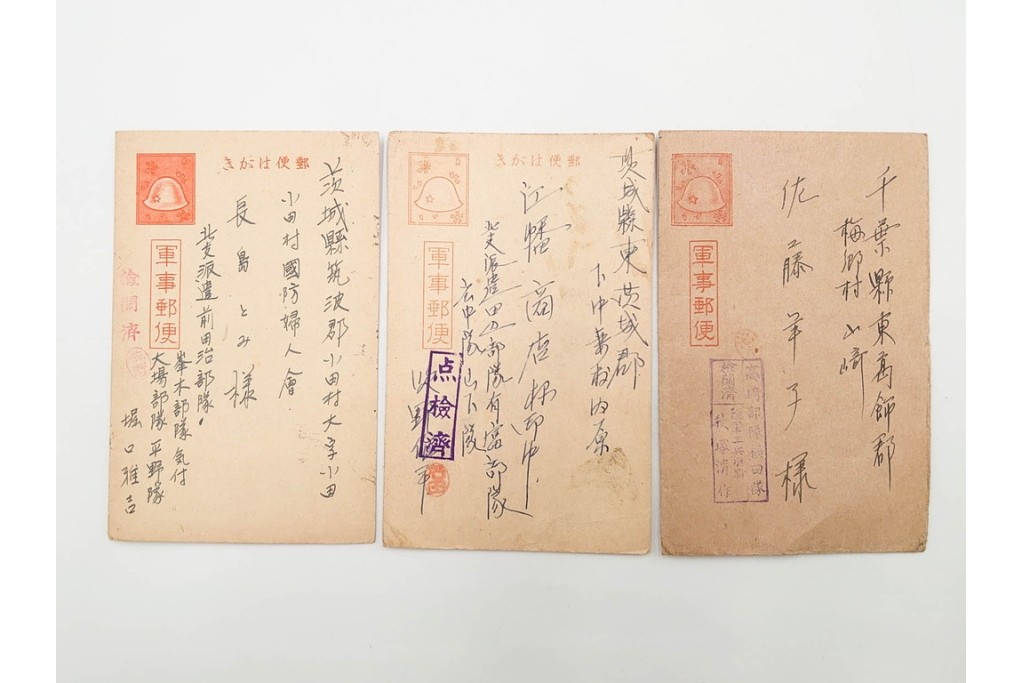 郵便はがき
軍事郵便
檢閲済
茨城縣筑波郡小田村大字小田
小田村國防婦人會
長島とみ様
北支派遣前田治部隊
峯木部隊気付
大場部隊平野隊
堀口雅吉
郵便はがき
軍事郵便
茨城縣東茨城郡
下中妻村内原
江幡商店様御中
北支派遣田辺部隊有富部隊
山下隊
点檢濟
軍事郵便
千葉縣東葛飾郡
梅郷村山崎
佐藤羊子様
檢閲済